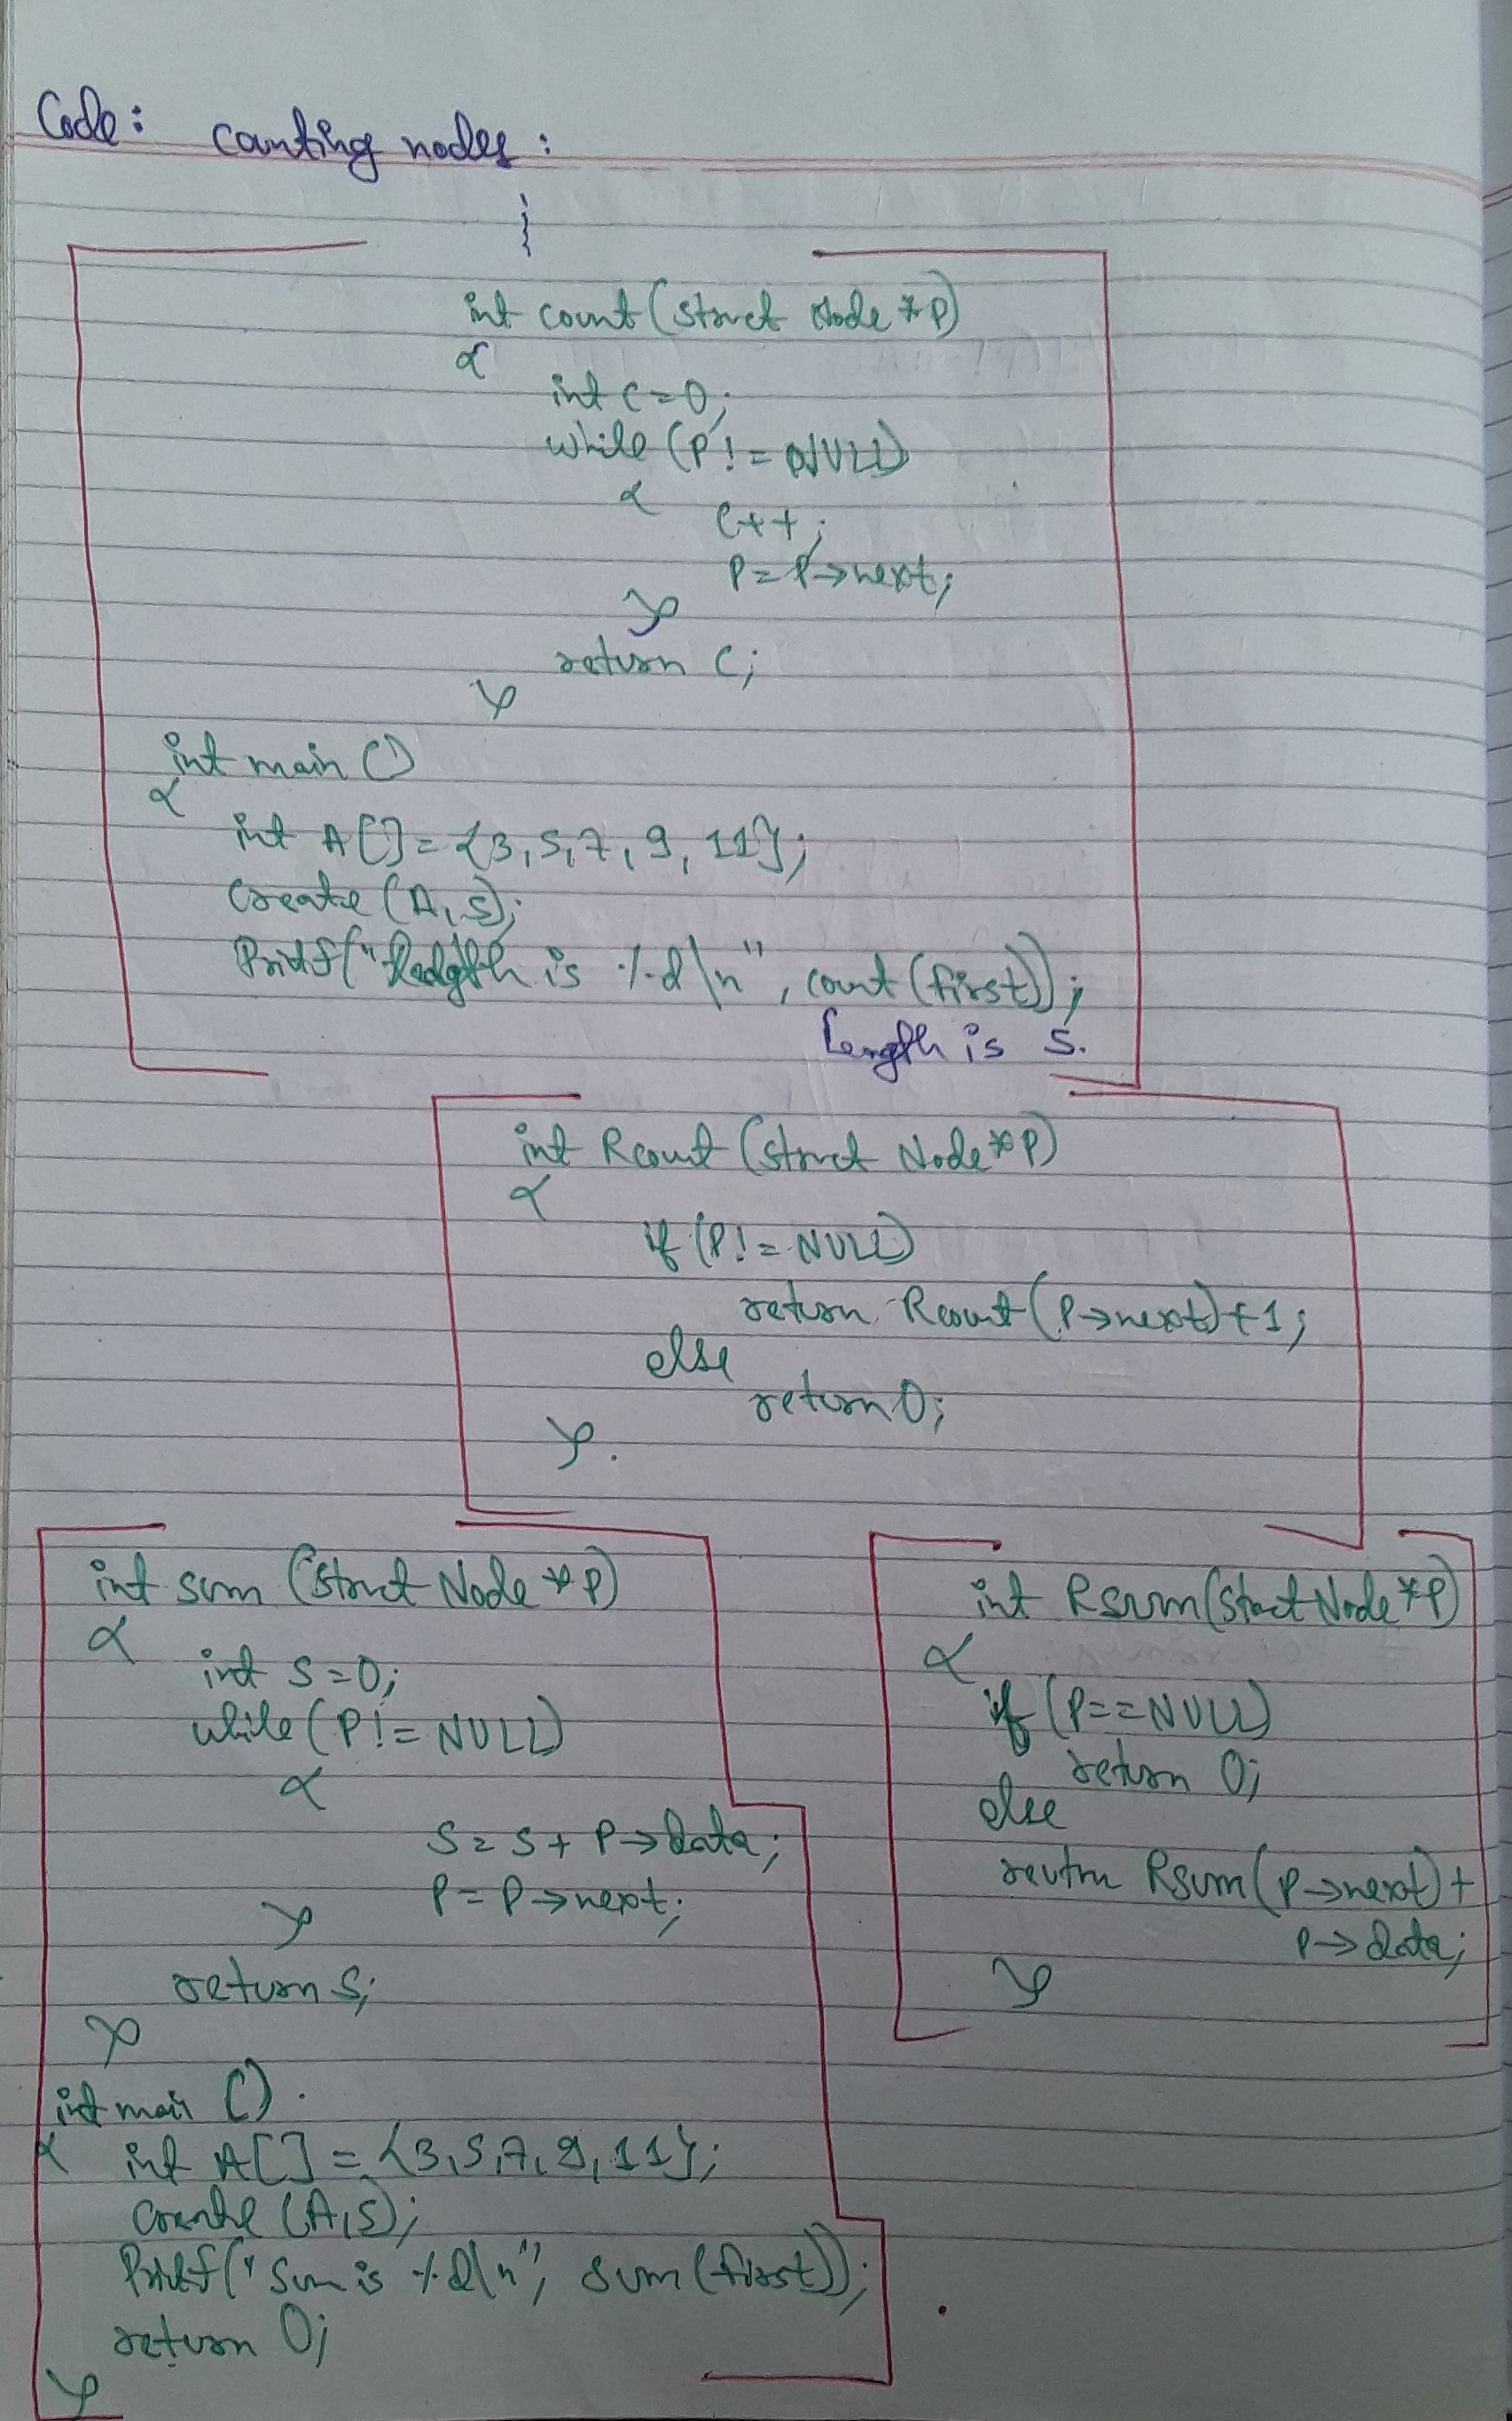 Code: Counting nodes:
int count (struct Node *P)
{
int c=0;
while (P != NULL)
{
c++;
P=P->next;
}
return c;
}
int main ()
{
int A[]={3,5,7,9,11};
create (A,5);
Printf("length is %d\n", count (first));
Length is 5.
int Rcount (struct Node *P)
{
if (P != NULL)
return Rcount (P->next)+1;
else
return 0;
}.
int sum (struct Node *P)
{
int S=0;
while (P != NULL)
{
S=S+P->data;
P=P->next;
}
return S;
}
int main ().
{ int A[]={3,5,7,9,11};
Create (A,5);
Printf("Sum is %d\n", sum (first));
return 0;
}
int Rsum (struct Node *P)
{
if (P==NULL)
return 0;
else
reutrn Rsum (P->next)+
P->data;
}